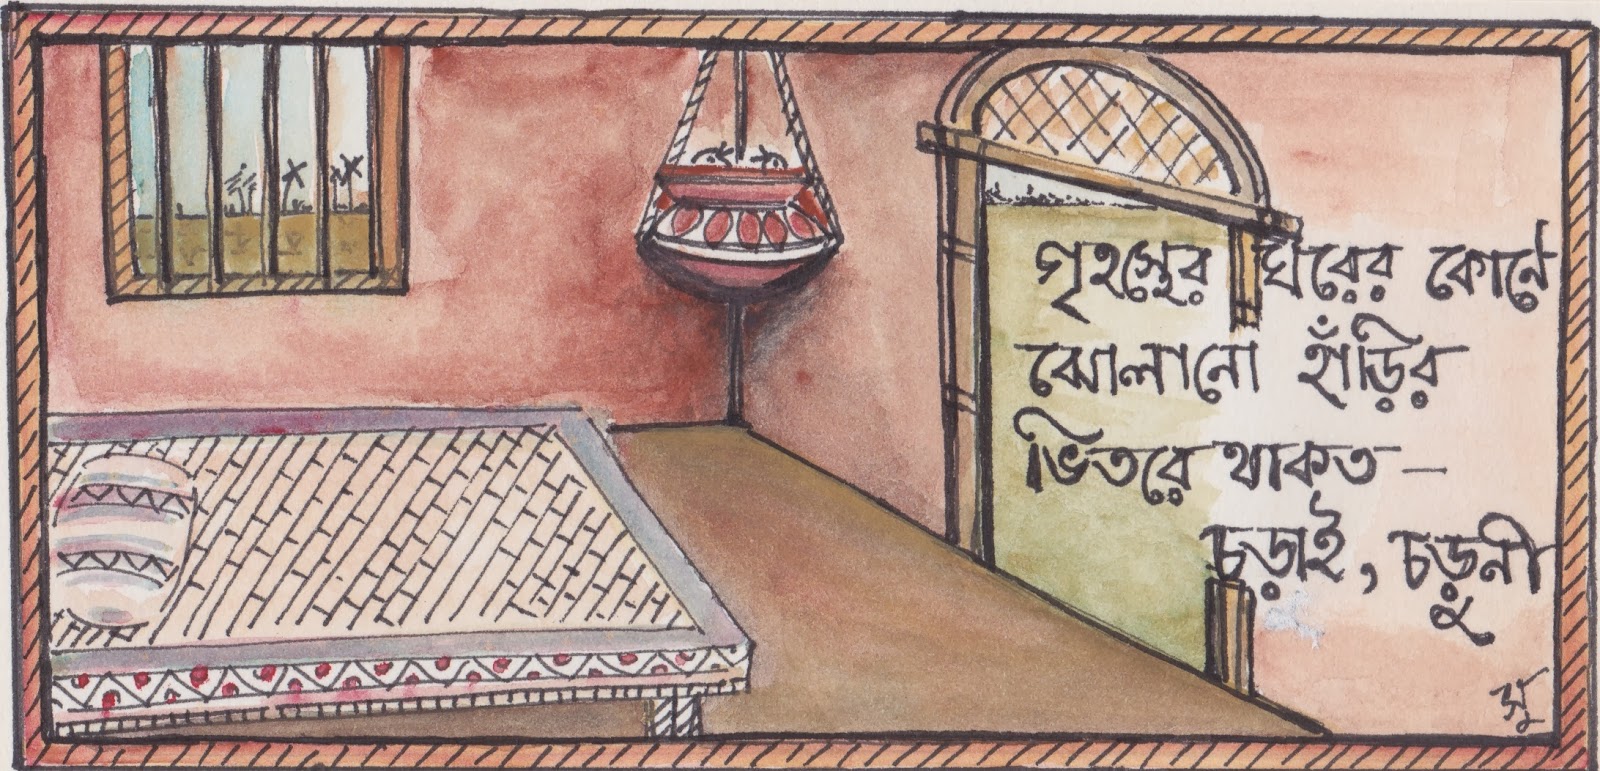 গৃহস্থের ঘরের কোনে
ঝোলানো হাঁড়ির
ভিতরে থাকত –
চড়াই, চড়ুনী
সু